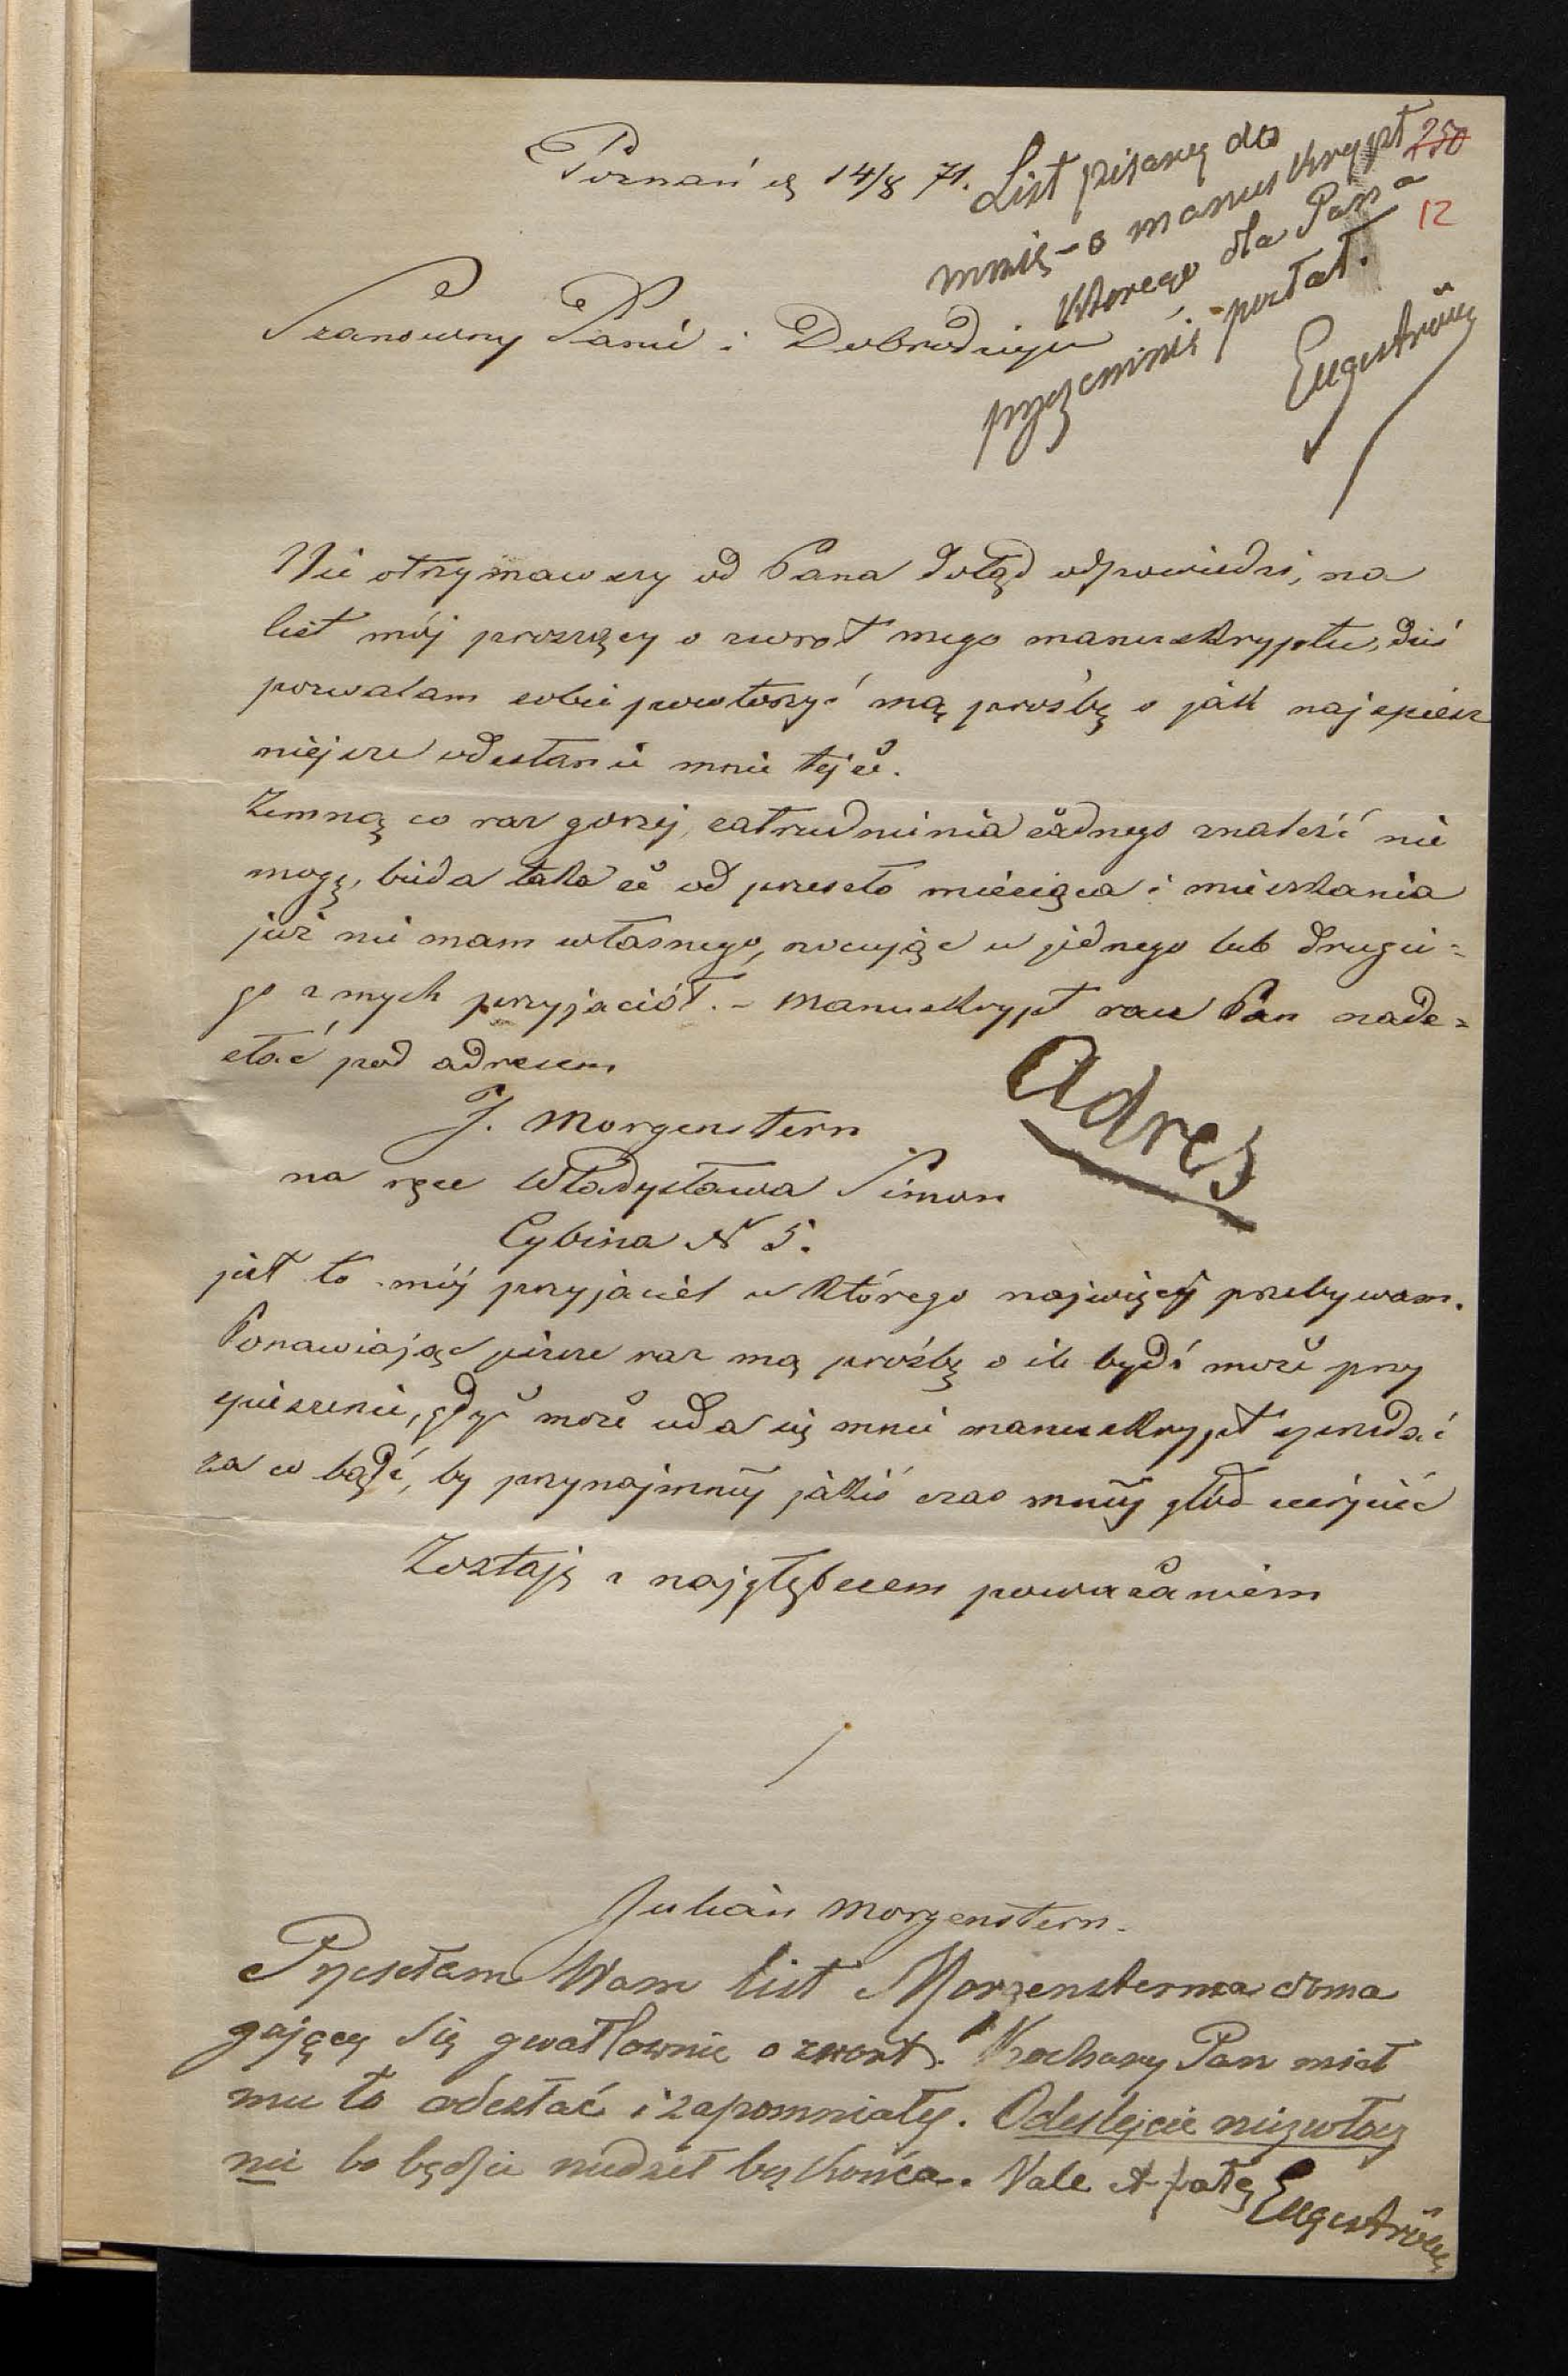 Poznań d 14/8 71.
250
12
List pisany do
mnie - o manuskrypt
ktorego dla Pana
przezemnie posłał.
Engeström
Szanowny Panie i Dobrodzieju
Nie otrzymawszy od Pana dotąd odpowiedzi, na
list mój proszący o zwrot mego manuskryptu, dziś
pozwalam sobie powtorzyć mą prośbę o jak najspiesz
niejsze odesłanie mnie tejże.
Zemną co raz gorzej, zatrudnienia żadnego znaleźć nie
mogę, bieda taka że od przeszło miesiąca i mieszkania
już nie mam własnego, nocując u jednego lub drugie=
go z mych przyjaciół. - Manuskrypt racz Pan nade=
słać pod adresem
Adres
J. Morgenstern
na ręce Władysława Simon
Cybina N 5.
jest to mój przyjaciel u którego najwięcej przebywam.
Ponawiając jeszcze raz mą prośbę o ile bydź może przy
spieszenie, gdyż może uda się mnie manuskrypt sprzedać
za co bądź, by przynajmniej jakiś czas mniej głód cierpieć
Zostaję z najgłębszem poważaniem
Julian Morgenstern.
Przesełam Wam list Morgensterna doma
gający się gwałtownie o zwrot. Kochany Pan miał
mu to odesłać i zapomniałeś. Odeslejcie niezwłocz
nie bo będzie nudził bez końca. Vale
Engeström